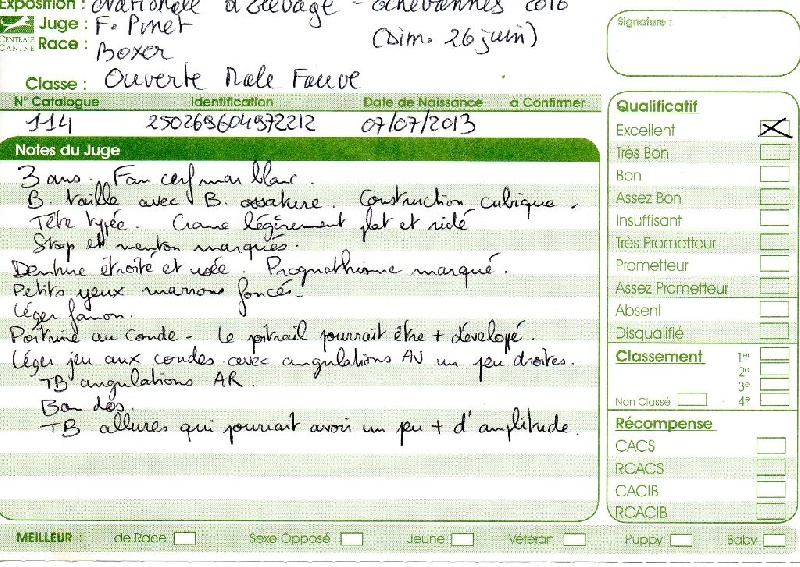 Exposition : Nationale d'Elevage - Echevannes 2016
Juge : F. Pinet
(Dim. 26 juin)
CENTRALE CANINE
Race : Boxer
Classe : Ouverte Male Fauve
Signature :
N° Catalogue Identification Date de Naissance à Confirmer
114 250269604972212 07/07/2013
Notes du Juge
3 ans. Fau cerf mar blanc.
B. taille avec B. ossature. Construction cubique.
Tête typée. Crane légèrement plat et ridé
Stop et menton marqués.
Denture étroite et usée. Prognathisme marqué.
Petits yeux marrons foncés.
Léger fanon.
Poitrine au coude - Le poitrail pourrait être + développé.
Léger jeu aux coudes avec angulations AV un peu droites.
TB angulations AR.
Bon dos
TB allures qui pourrait avoir un peu + d'amplitude.
Qualificatif
Excellent
Très Bon
Bon
Assez Bon
Insuffisant
Très Prometteur
Prometteur
Assez Prometteur
Absent
Disqualifié
Classement 1er
2e
3e
Non Classé 4e
Récompense
CACS
RCACS
CACIB
RCACIB
MEILLEUR : de Race Sexe Opposé Jeune Vétéran Puppy Baby